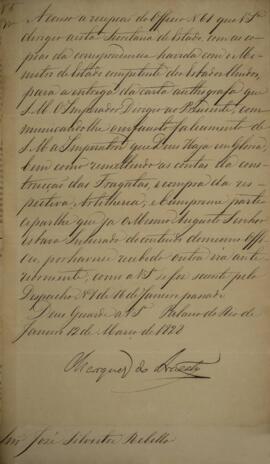 Accuso a recepção do Officio Nº 61 que VSª
dirigio a esta Secretaria de Estado, com as co-
pias da correspondencia havida com o Mi-
nistro de Estado competente dos Estados Unidos,
para a entrega da carta authografa que
S. M. O Imperador Dirigio ao Presidente, com-
municando-lhe o infausto falecimento de
S. M. a Imperatriz que Deus Haja em Gloria,
bem como remettendo as contas da cons-
trucção das Fragatas, e compra da res-
pectiva Artilheria; e cumpre-me parti-
cipar-lhe que já o Mesmo Augusto Senhor
estava Inteirado do contheudo do mesmo Offi-
cio, por haver recebido outra via ante-
riormente, como a VSª se fez sciente pelo
Despacho Nº 1 de 16 de Janeiro passado.
Deus Guarde a VSª Palacio do Rio de
Janeiro 12 de Março de 1828
Marquez do Aracaty
Snr José Silvestre Rebello